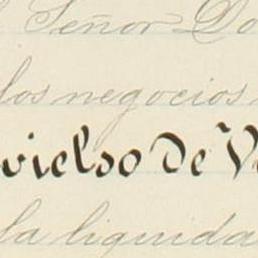 Señor Do
los negocios
vielso de V
la liquida